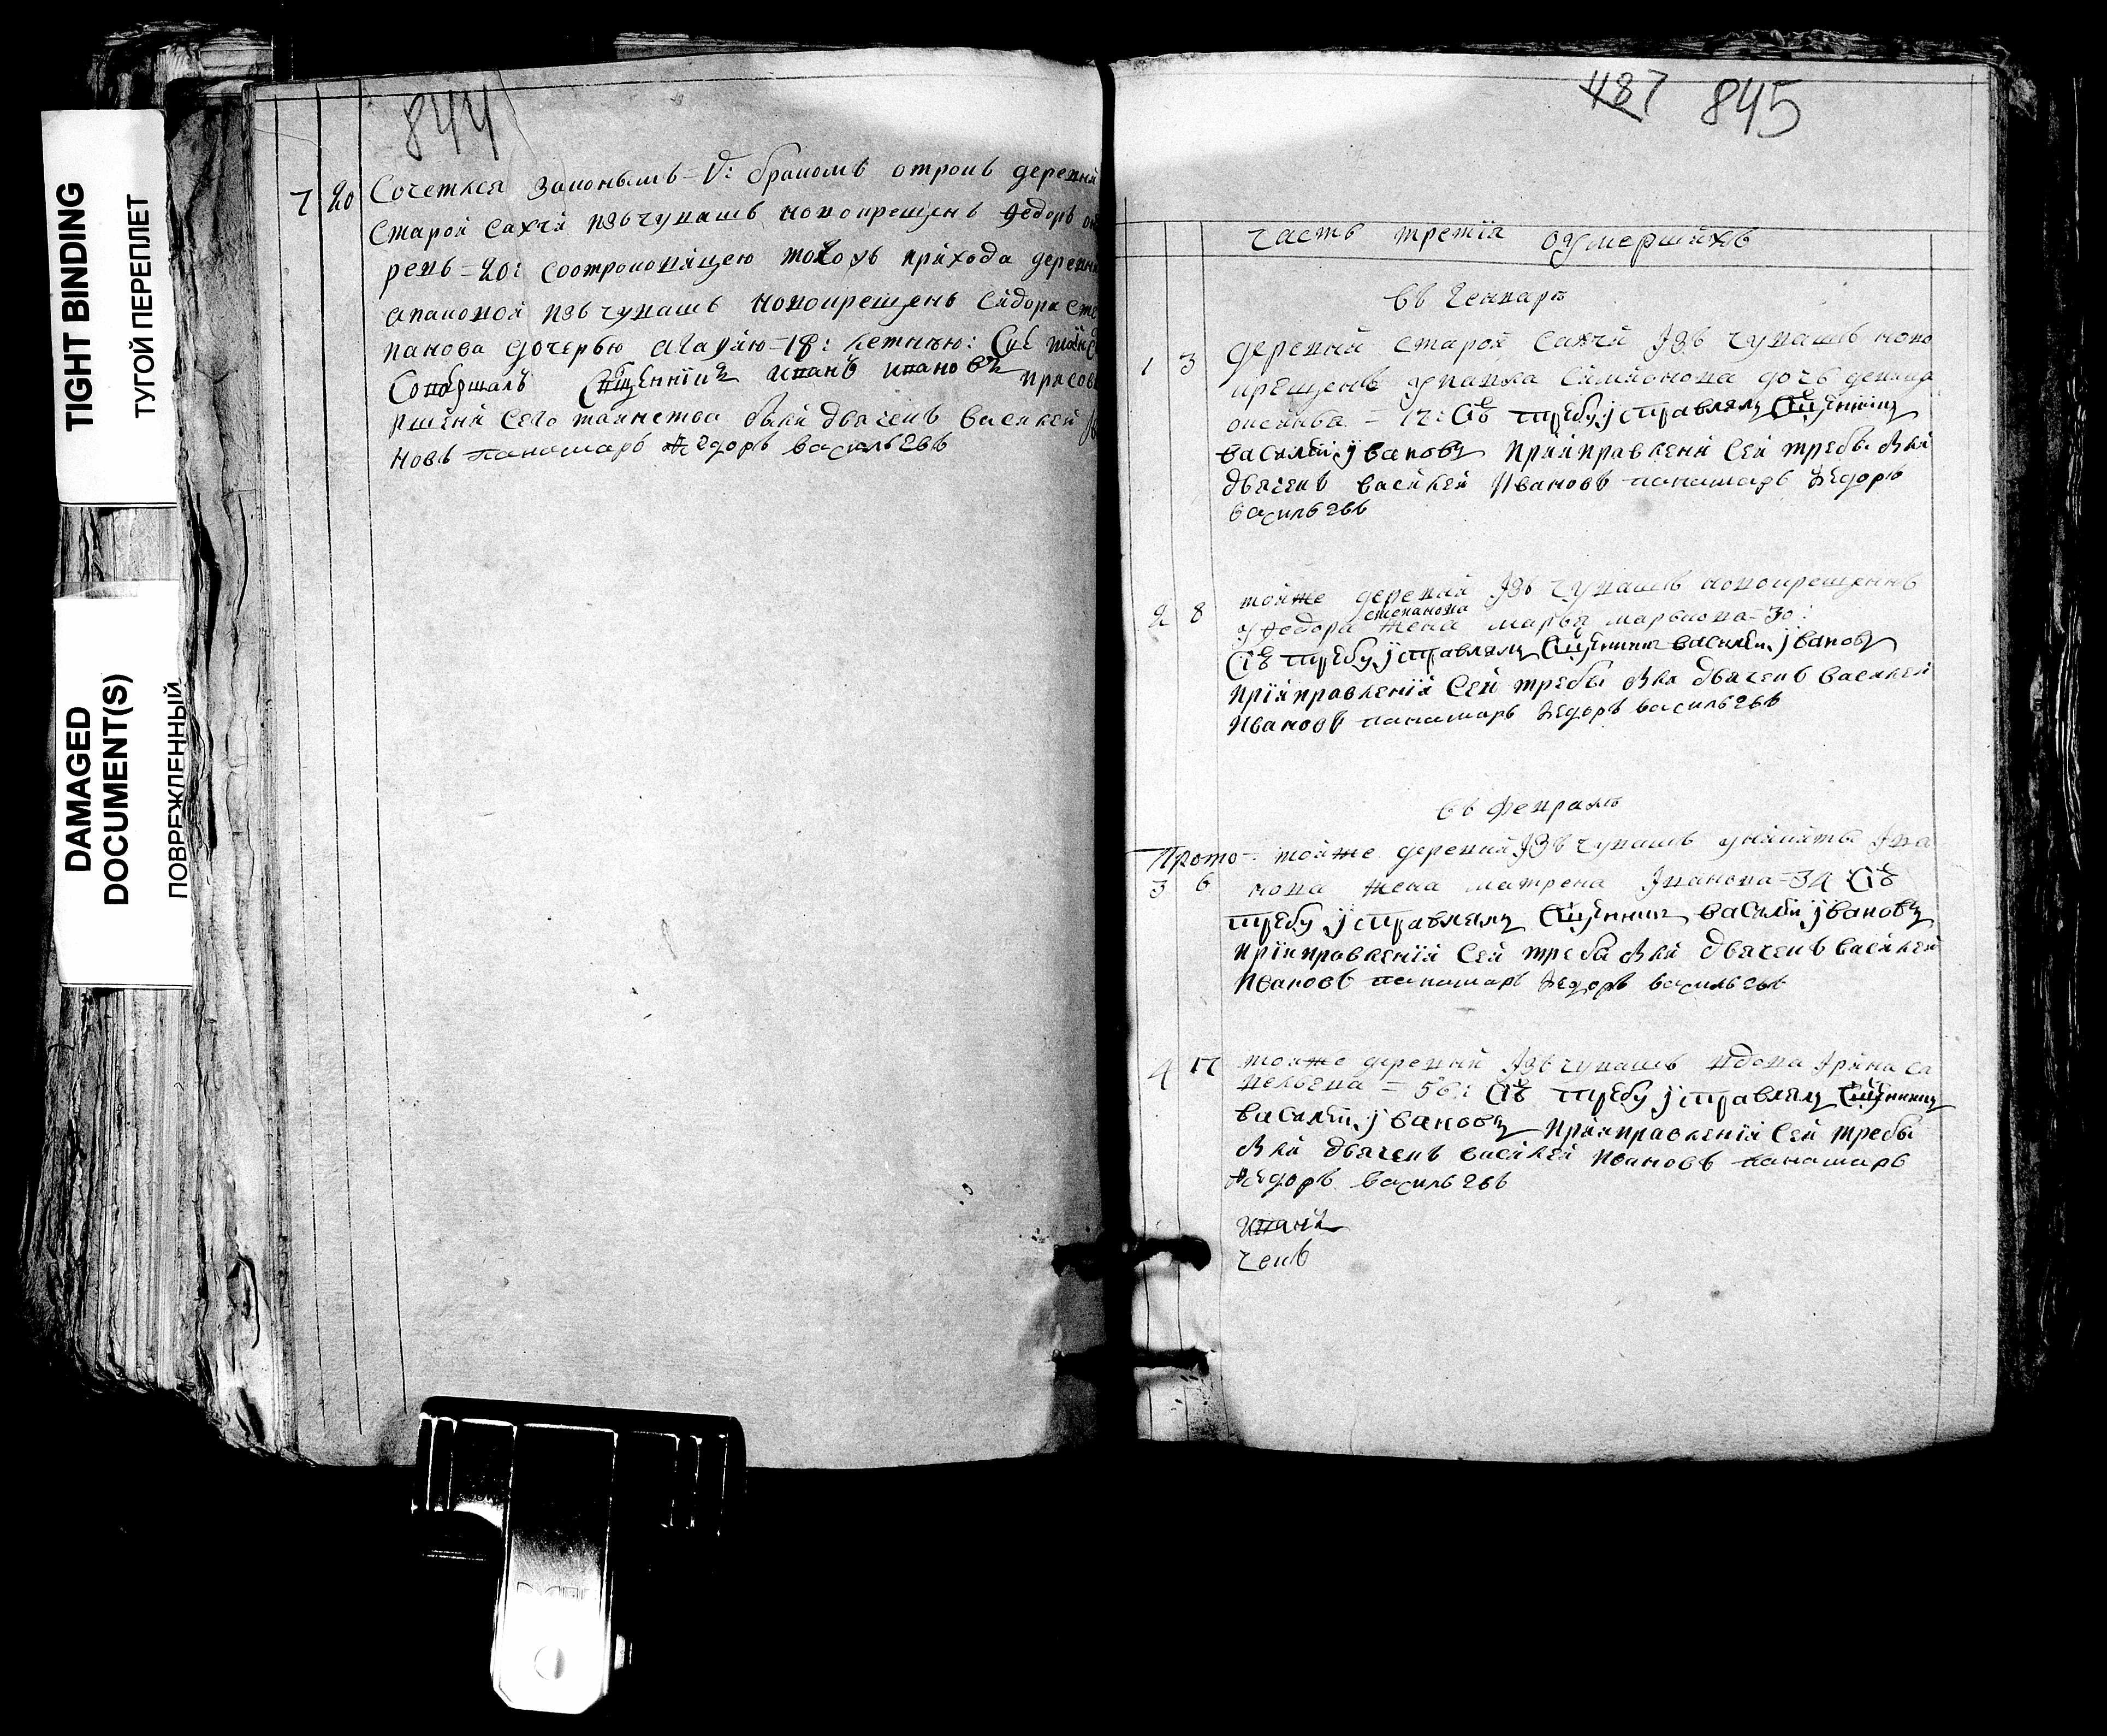 TIGHT BINDING
ТУГОЙ ПЕРЕПЛЕТ
DAMAGED
DOCUMENT(S)
ПОВРЕЖДЕННЫЙ
844
7 20 Сочетася законымъ бракомъ отрокъ деревни
Старой Сахчи изъ чувашъ новокрещенъ Федоръ
20: соотроковицею тогожъ прихода деревни
изъ чувашъ новокрещенъ Сидора Сте
панова дочерью 18: летнею: Сие таинс
Совершалъ Сщенникъ иванъ ивановъ присове
ршени Сего таинства были дьячекъ василей Ива
новъ панамарь Федоръ васильевъ
487 845
часть третия оумершихъ
въ Генваре
1 3 деревни Старой Сахчи Изъ чувашъ ново
крещенъ Симионова дочь
12: Сiю требу исправлялъ Сщенникъ
василий ивановъ Приправлени Сей требы были
дьячекъ василей Ивановъ панамарь Федоръ
васильевъ
2 8 тойже деревни Изъ чувашъ новокрещенъ
степанова
у Федора жена маркова 30:
Сiю требу исправлялъ Сщенникъ василий ивановъ
Приправлении Сей требы были дьячекъ василей
Ивановъ панамарь Федоръ васильевъ
въ Феврале
тойже деревни Изъ чувашъ Ива
3 6 нова жена матрена Иванова 34 Сiю
требу исправлялъ Сщенникъ василий ивановъ
Приправлении Сей требы были дьячекъ василей
Ивановъ панамарь Федоръ васильевъ
4 17 тойже деревни Изъ чувашъ вдова Ирина Са
вельева 56: Сiю требу исправлялъ Сщенникъ
василий ивановъ Приправлении Сей требы
были дьячекъ василей Ивановъ панамарь
Федоръ васильевъ
иванъ
чекъ